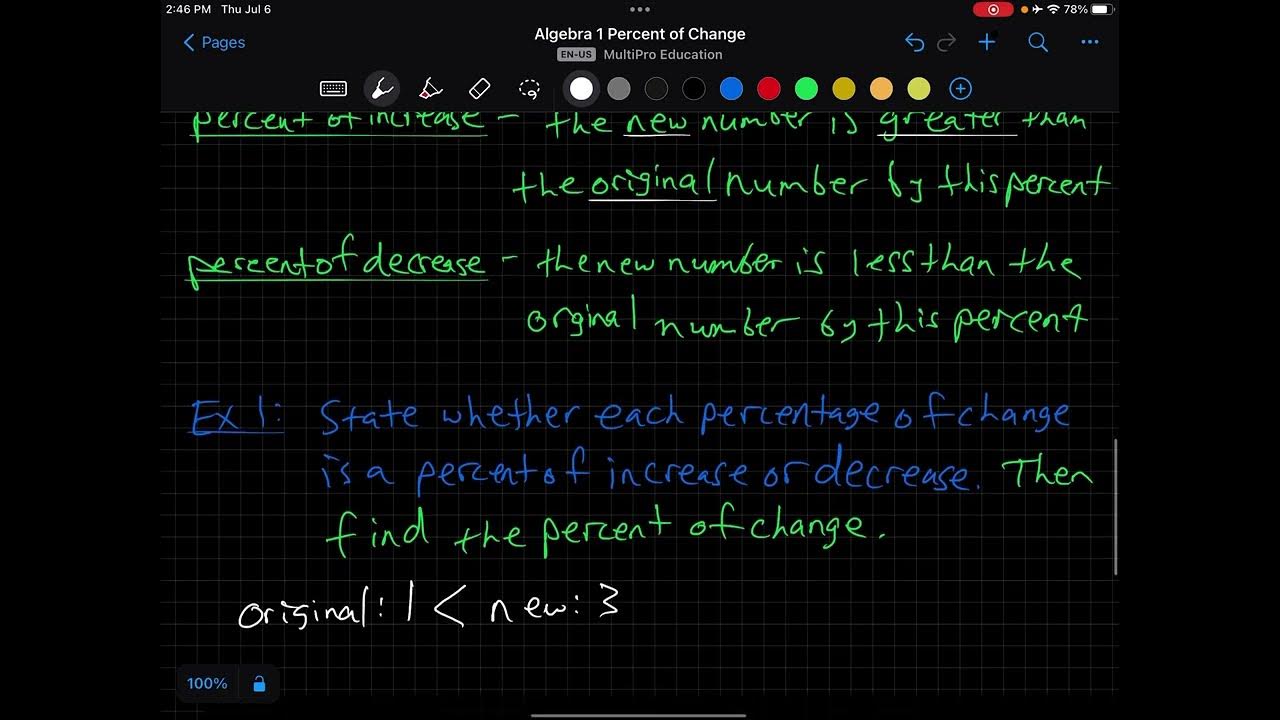 2:46 PM Thu Jul 6
78%
Pages
Algebra 1 Percent of Change
EN-US MultiPro Education
percent of increase - the new number is greater than
the original number by this percent
percent of decrease - the new number is less than the
orginal number by this percent
Ex 1: State whether each percentage of change
is a percent of increase or decrease. Then
find the percent of change.
original: 1 < new: 3
100%